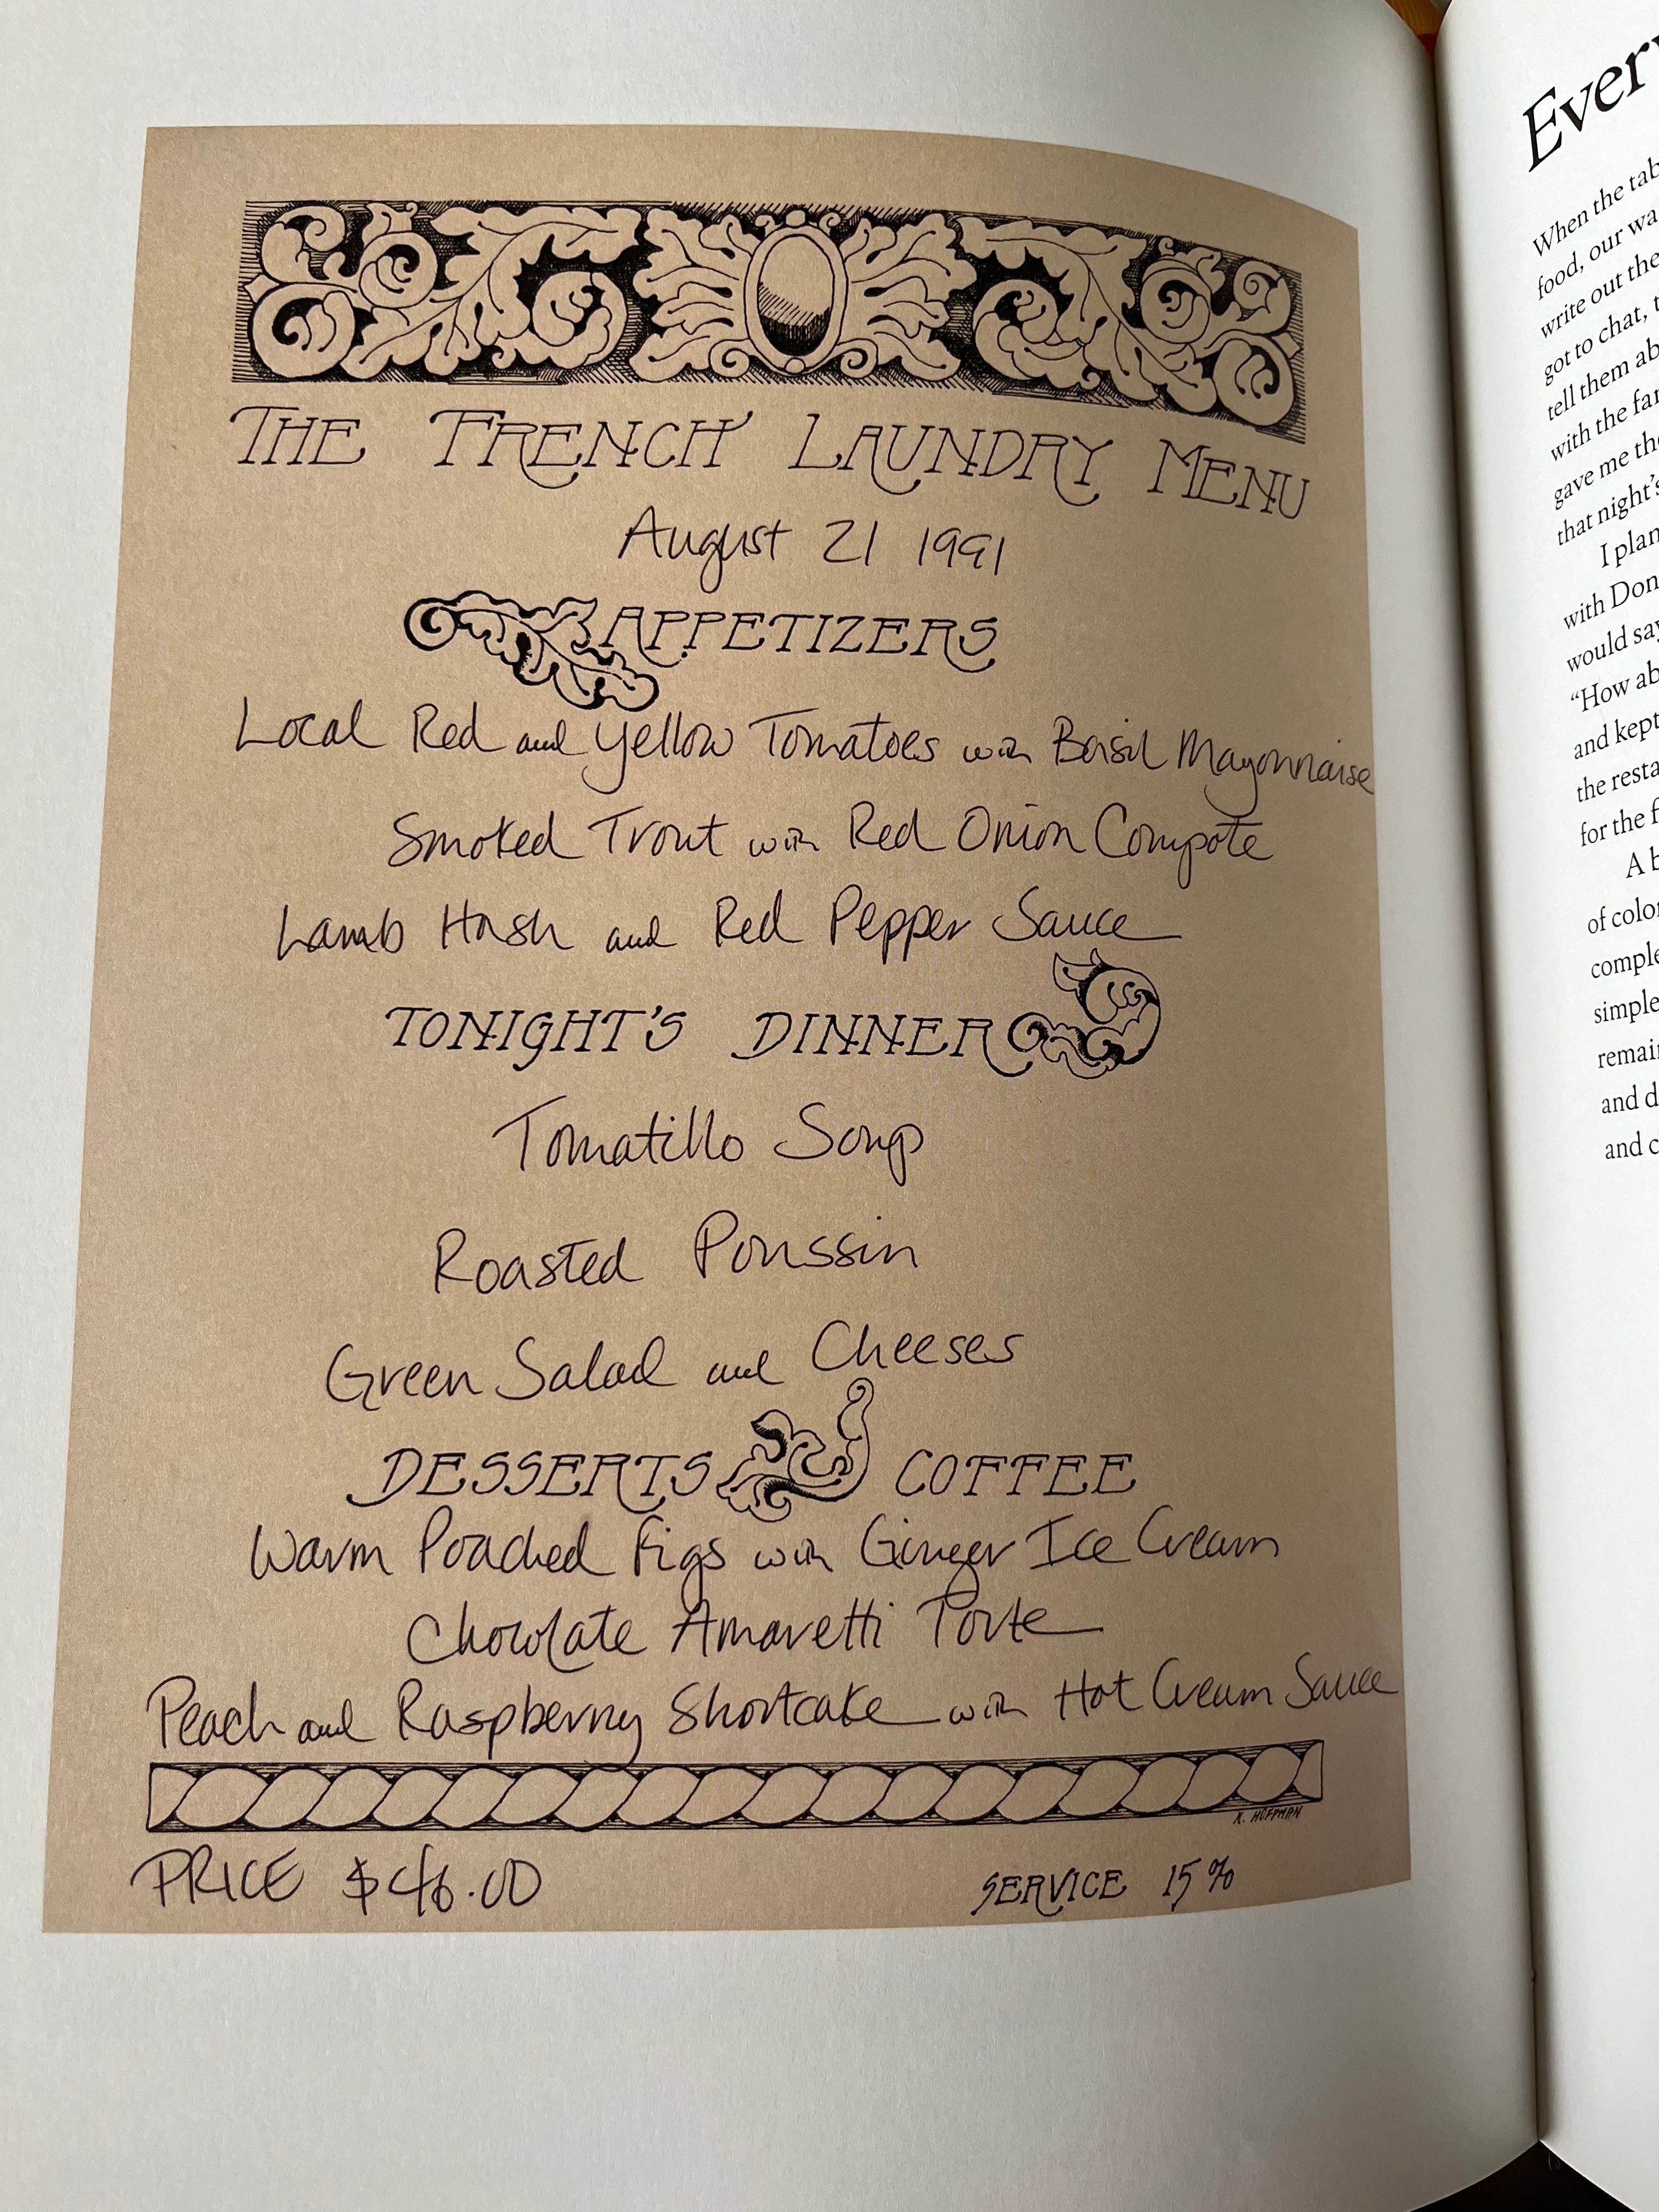 THE FRENCH LAUNDRY MENU
August 21 1991
APPETIZERS
Local Red and Yellow Tomatoes with Basil Mayonnaise
Smoked Trout with Red Onion Compote
Lamb Hash and Red Pepper Sauce
TONIGHT'S DINNER
Tomatillo Soup
Roasted Poussin
Green Salad and Cheeses
DESSERTS COFFEE
Warm Poached Figs with Ginger Ice Cream
Chocolate Amaretti Torte
Peach and Raspberry Shortcake with Hot Cream Sauce
K. HOFFMAN
PRICE $46.00
SERVICE 15%
Ever
When the tab
food, our wa
write out the
got to chat, t
tell them ab
with the far
gave me the
that night's
I plan
with Don
would say
"How ab
and kept
the resta
for the f
A b
of color
comple
simple
remai
and d
and c